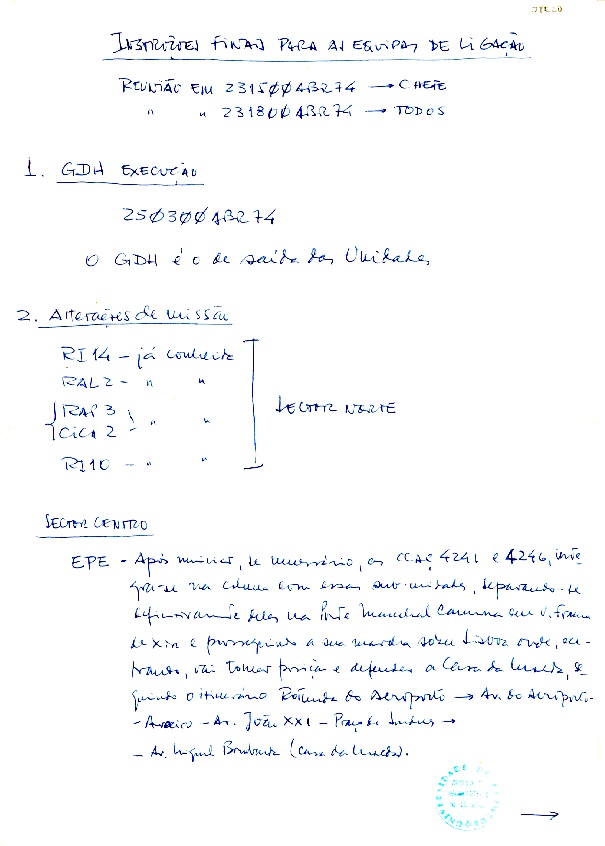 OTELO
INSTRUÇÕES FINAIS PARA AS EQUIPAS DE LIGAÇÃO
REUNIÃO EM 231500ABR74 → CHEFE
" " 231800ABR74 → TODOS
1. GDH EXECUÇÃO
250300ABR74
O GDH é o de saída das Unidades
2. Alterações de missão
RI14 - já conhecida
RAL2 - " "
RAP3
CICA 2 - " "
RI10 - " "
SECTOR NORTE
SECTOR CENTRO
EPE - Após municiar, se necessário, as CCAÇ 4241 e 4246, inte
gra-se na coluna com essas sub-unidades, separando-se
definitivamente delas na Ponte Marechal Carmona em V. Franca
de Xira e prosseguindo a sua marcha sobre Lisboa onde, en-
trando, vai tomar posição e defender a Casa da Moeda, se
guindo o itinerário Rotunda do Aeroporto → Av. do Aeroporto-
- Areeiro - Av. João XXI - Praça de Londres →
- Av. Miguel Bombarda (Casa da Moeda).
→